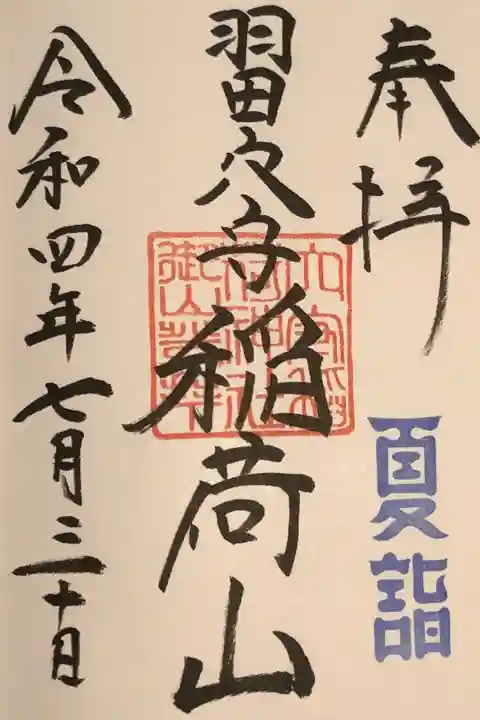 奉拝
夏詣
羽田穴守稲荷山
令和四年七月三十日